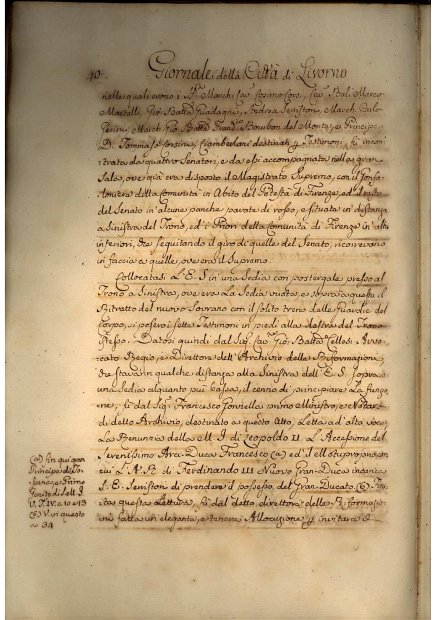 40. Giornale della Città di Livorno
nelle quali erono i SS.ri March. Cav. Cosimo Corsi, Cav. Bal. Marco
Martelli, Gio: Batta Guadagni, Andrea Serristori, March. Carlo
Gerini, March. Gio: Batta Franc.º Bourbon del Monte, e Principe
D. Tommaso Corsini, Ciamberlani destinati p Testimoni, fù incon
trata da quattro Senatori, e da essi accompagnata nella gran
Sala, ove già era disposto il Magistrato Supremo, con il Gonfa
loniere della Comunità in Abito del Potestà di Firenze, ed il resto
del Senato in alcune panche parate di rosso, e situate in distanza
a Sinistra del Trono, ed i Priori della Comunità di Firenze in altre
inferiori, che seguitando il giro di quelle del Senato, ricorrevano
in faccia a quelle, ove era il Supremo.
Collocatasi L'E. S. in una Sedia con postergale presso al
Trono a Sinistra, ove era La Sedia vuota, e sopra a questa il
Ritratto del nuovo Sovrano con il solito treno delle Guardie del
Corpo, si posero i sette Testimoni in piedi alla destra del Trono
stesso. Datosi quindi dal Sig. Cav. Gio: Batta Cellesi Avvo
cato Regio, e Direttore dell'Archivio delle Riformagioni,
che stava in qualche distanza alla Sinistra dell'E. S. sopra
una Sedia alquanto più bassa, il cenno di principiare La funzio
ne, fù dal Sig. Francesco Gonnella primo Ministro, e Notaro
di detto Archivio, destinato a questo Atto, Letta ad alta voce
La Renunzia della M. I. di Leopoldo II. L'Accessione del
Serenissimo Arci-Duca Francesco (a) ed il Motuproprio con
cui L'A. R. di Ferdinando III Nuovo Gran-Duca incarica
S. E. Serristori di prendere il possesso del Gran-Ducato. (b) Fi
nita questa Lettura, fù dal detto direttore delle Riformagioni
fatta un elegante, e tenera Allocuzione p invitare i
(a) fin qui gran
Principe di To
scana, e Primo
Genito di S. M. I.
V. T. IV. a 10 e 13
(b) V. in questo
a 34